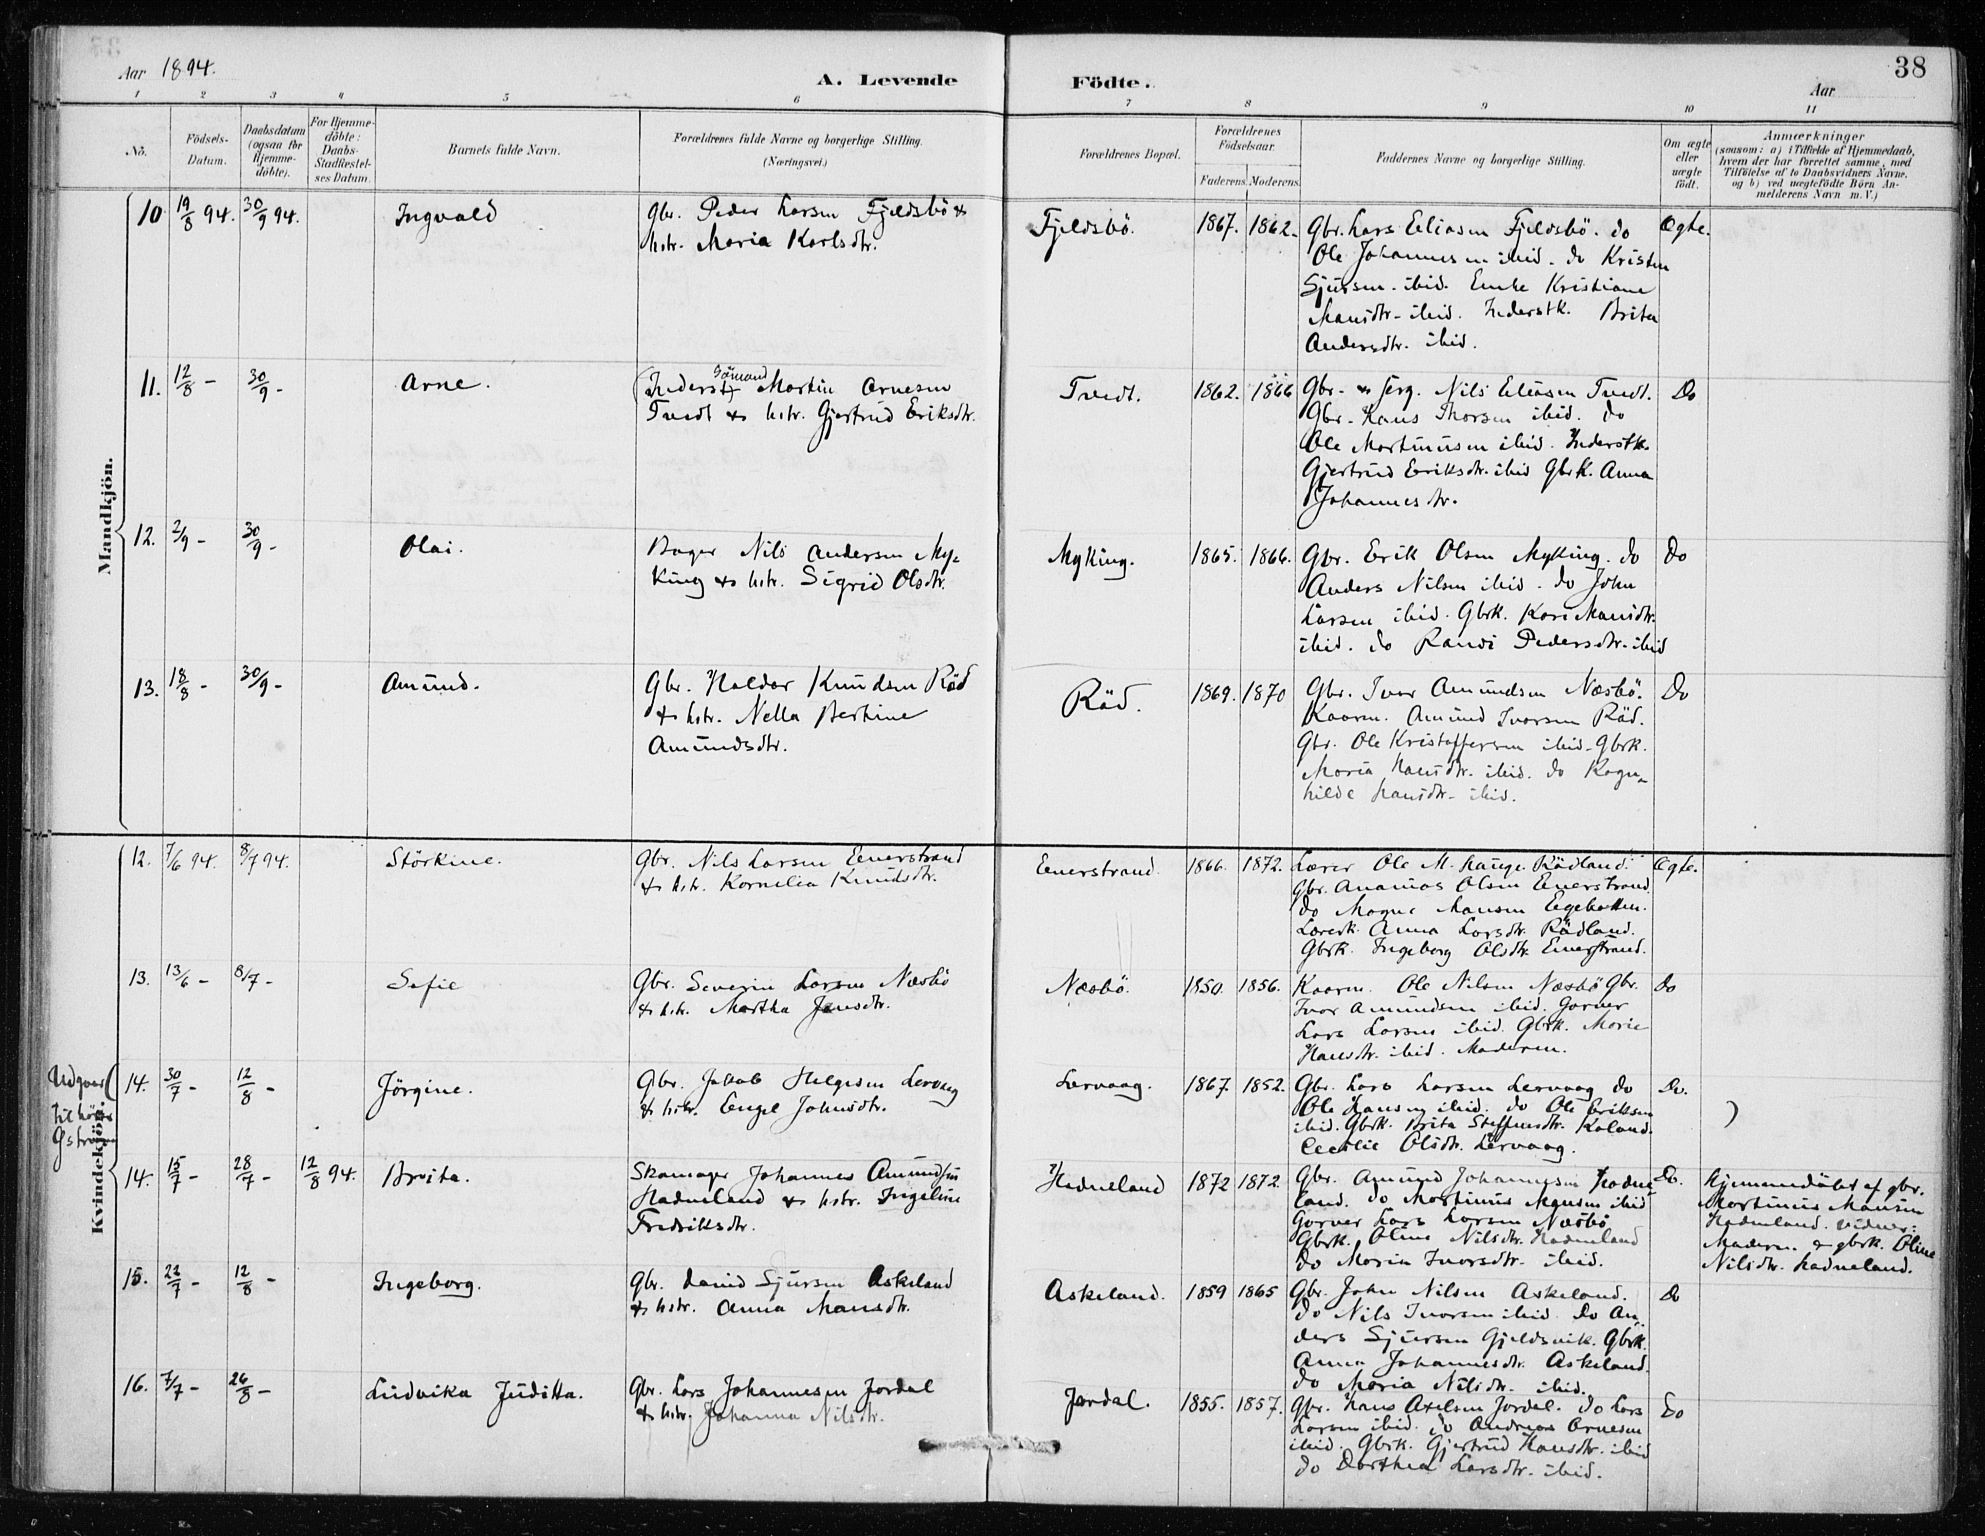 Aar 1894.
A. Levende
Födte.
38
Aar
1 2 3 4 5 6 7 8 9 10 11
No.
Födsels-
Datum.
Daabsdatum
(ogsaa for
Hjemme-
döbte).
For Hjemme-
döbte:
Daabs-
Stadfæstel-
ses Datum.
Barnets fulde Navn.
Forældrenes fulde Navne og borgerlige Stilling.
(Næringsvei.)
Forældrenes Bopæl.
Forældrenes
Födselsaar.
Faderens. Moderens.
Faddernes Navne og borgerlige Stilling.
Om ægte
eller
uægte
födt.
Anmærkninger
(saasom: a) i Tilfælde af Hjemmedaab,
hvem der har forrettet samme, med
Tilföielse af to Daabsvidners Navne.
og b) ved uægtefödte Börn An-
melderens Navn m. V.)
Mandkjön.
10 19/8 94. 30/9 94.
Ingvald
Gbr. Peder Larsen Fjeldsbö &
hstr. Maria Karlsdtr.
Fjeldsbö.
1867. 1862.
Gbr. Lars Eliasen Fjeldsbö. do
Ole Johannesen ibid. do Kristen
Sjursen ibid. Enke Kristiane
Mansdtr. ibid. Inderstk. Brita
Andersdtr. ibid.
Ægte.
11. 12/8 - 30/9 -
Arne.
Sömand
(Inderst) Martin Arnesen
Tvedt & hstr. Gjertrud Eriksdtr.
Tvedt.
1862. 1866
Gbr. & Serg. Nils Eliasen Tvedt.
Gbr. Hans Thorsen ibid. do
Ole Martinusen ibid. Inderstk.
Gjertrud Eriksdtr. ibid Gbrk. Anna
Johannesdtr.
Do
12. 2/9 - 30/9 -
Olai.
Bager Nils Andersen My-
king & hstr. Sigrid Olsdtr.
Myking.
1865. 1866.
Gbr. Erik Olsen Myking. do
Anders Nilsen ibid. do John
Larsen ibid. Gbrk. Kari Mansdtr.
ibid. do Randi Pedersdtr. ibid
Do
13. 18/8 - 30/9 -
Amund.
Gbr. Haldor Knudsen Röd
& hstr. Nella Bertine
Amundsdtr.
Röd.
1869. 1870
Gbr. Ivar Amundsen Næsbö.
Kaarm. Amund Ivarsen Röd.
Gbr. Ole Kristoffersen ibid. Gbrk.
Maria Hansdtr. ibid. do Ragn-
hilde Hansdtr. ibid.
Do
Kvindekjön.
12. 7/6 94. 8/7 94.
Störkine.
Gbr. Nils Larsen Eenerstrand
& hstr. Kornelia Knudsdtr.
Eenerstrand.
1866. 1872.
Lærer Ole M. Hauge Rödland.
Gbr. Ananias Olsen Eenerstrand.
do Magne Mansen Eegebotten.
Lærerk. Anna Larsdtr. Rödland.
Gbrk. Ingeborg Olsdtr. Eenerstrand.
Ægte.
13. 13/6 - 8/7 -
Sofie
Gbr. Severin Larsen Næsbö
& hstr. Martha Jensdtr.
Næsbö.
1850. 1856.
Kaarm. Ole Nilsen Næsbö Gbr.
Ivar Amundsen ibid. Garver
Lars Larsen ibid. Gbrk. Marie
Hansdtr. ibid. Moderen.
Do
Udgaar (
tilhörer
14. 30/7 - 12/8 -
Jörgine.
Gbr. Jakob Helgesen Lervaag
& hstr. Engel Johnsdtr.
Lervaag.
1867. 1852.
Gbr. Lars Larsen Lervaag do
Ole Hansen ibid. do Ole Eriksen
ibid. Gbrk. Brita Steffensdtr. Kaland.
Cecilie Olsdtr. Lervaag.
Do.
)
14. 15/7 - 28/7 - 12/8 94.
Brita.
Skomager Johannes Amundsen
Hadneland & hstr. Ingeline
Fredriksdtr.
Hadneland
1872 1872.
Gbr. Amund Johannesen Hadne
land. do Martinus Mansen ibid
Garver Lars Larsen Næsbö
Gbrk. Oline Nilsdtr. Hadneland
do Maria Ivarsdtr. ibid.
Do.
Hjemmedöbt af gbr.
Martinus Mansen
Hadneland. vidner:
Moderen & gbrk. Oline
Nilsdtr. Hadneland.
15. 22/7 - 12/8 -
Ingeborg.
Gbr. David Sjursen Askeland
& hstr. Anna Mansdtr.
Askeland.
1859 1865
Gbr. John Nilsen Askeland.
do Nils Ivarsen ibid. do An-
ders Sjursen Gjeldsvik. Gbrk.
Anna Johannesdtr. Askeland.
do Maria Nilsdtr. ibid.
Do
16. 7/7 - 26/8 -
Ludvika Juditta.
Gbr. Lars Johannesen Jordal
& hstr. Johanna Nilsdtr.
Jordal.
1855. 1857.
Gbr. Hans Axelsen Jordal. do Lars
Larsen ibid. do Andreas Arnesen
ibid. Gbrk. Gjertrud Hansdtr. ibid
do Dorthea Larsdtr. ibid.
Do